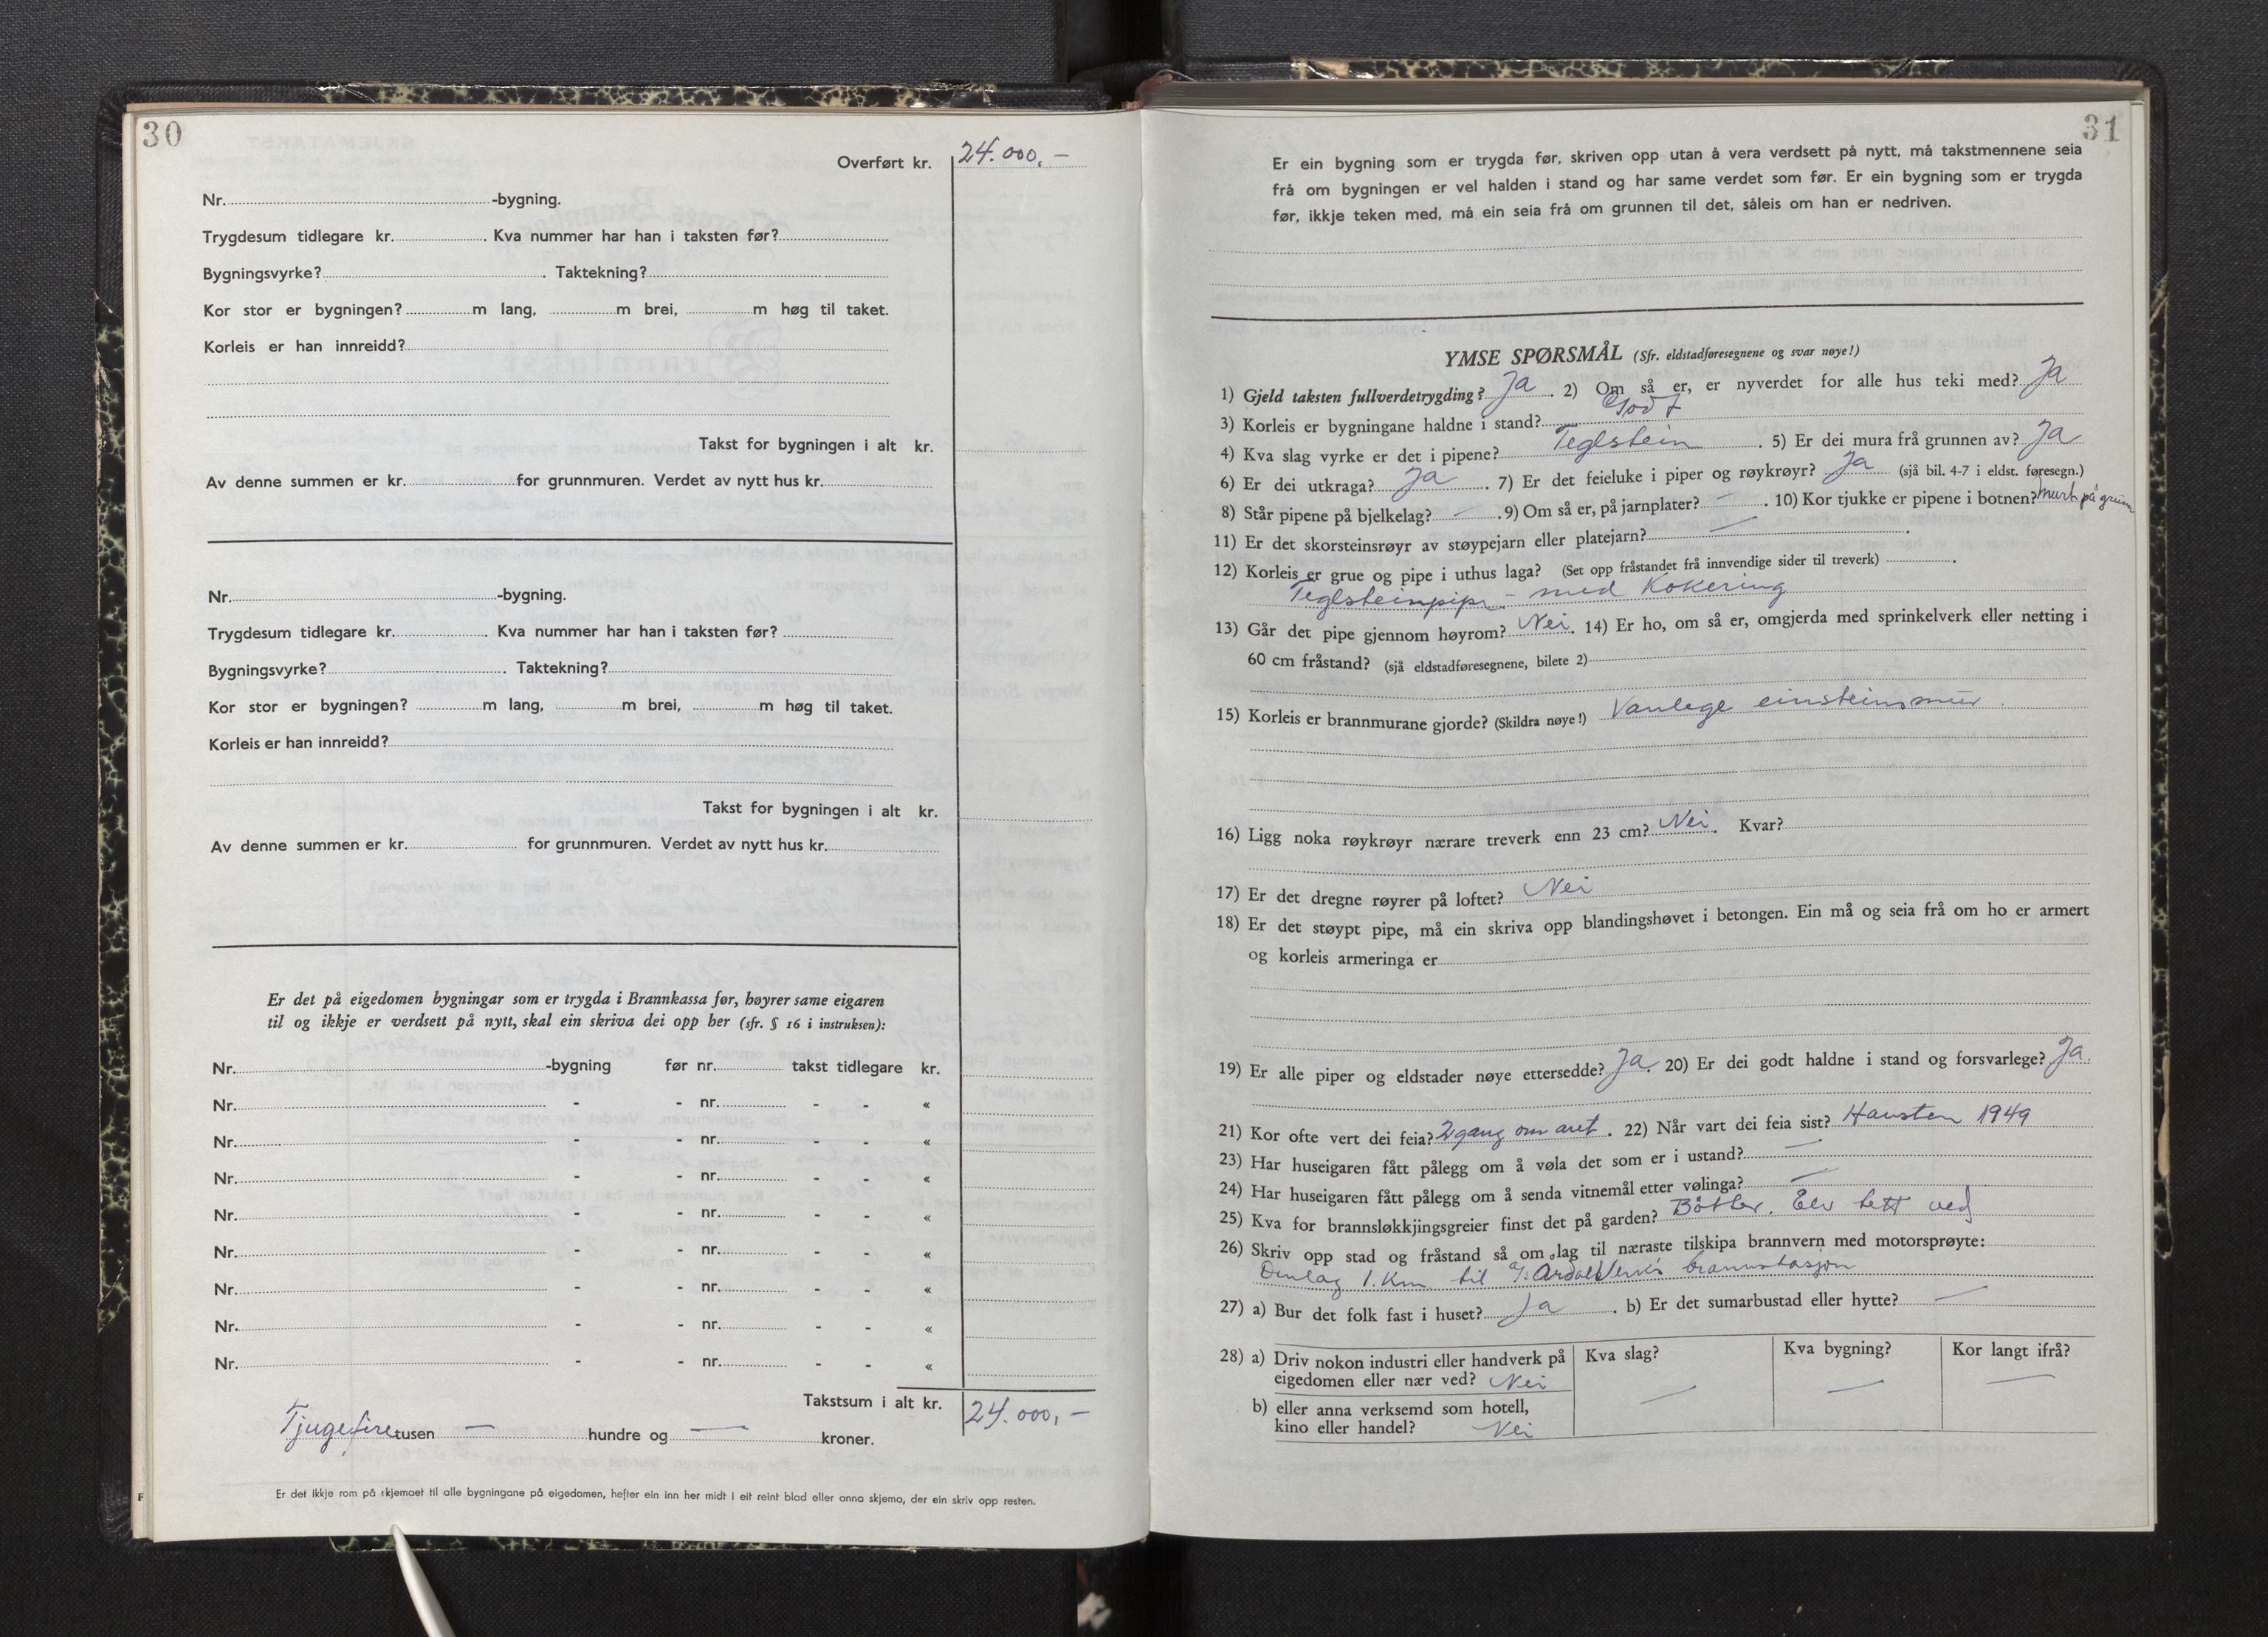 30
Overført kr. 24.000,–
Nr. -bygning.
Trygdesum tidlegare kr. . Kva nummer har han i taksten før?
Bygningsvyrke? . Taktekning?
Kor stor er bygningen? m lang, m brei, m høg til taket.
Korleis er han innreidd?
Takst for bygningen i alt kr.
Av denne summen er kr. for grunnmuren. Verdet av nytt hus kr.
Nr. -bygning.
Trygdesum tidlegare kr. . Kva nummer har han i taksten før?
Bygningsvyrke? . Taktekning?
Kor stor er bygningen? m lang, m brei, m høg til taket.
Korleis er han innreidd?
Takst for bygningen i alt kr.
Av denne summen er kr. for grunnmuren. Verdet av nytt hus kr.
Er det på eigedomen bygningar som er trygda i Brannkassa før, høyrer same eigaren
til og ikkje er verdsett på nytt, skal ein skriva dei opp her (sfr. § 16 i instruksen):
Nr. -bygning før nr. takst tidlegare kr.
Nr. - - nr. - - «
Nr. - - nr. - - «
Nr. - - nr. - - «
Nr. - - nr. - - «
Nr. - - nr. - - «
Nr. - - nr. - - «
Nr. - - nr. - - «
Nr. - - nr. - - «
Takstsum i alt kr. 24.000,–
Tjugefire tusen — hundre og — kroner.
Er det ikkje rom på skjemaet til alle bygningane på eigedomen, hefter ein inn her midt i eit reint blad eller anna skjema, der ein skriv opp resten.
31
Er ein bygning som er trygda før, skriven opp utan å vera verdsett på nytt, må takstmennene seia
frå om bygningen er vel halden i stand og har same verdet som før. Er ein bygning som er trygda
før, ikkje teken med, må ein seia frå om grunnen til det, såleis om han er nedriven.
YMSE SPØRSMÅL (Sfr. eldstadføresegnene og svar nøye!)
1) Gjeld taksten fullverdetrygding? Ja . 2) Om så er, er nyverdet for alle hus teki med? Ja
3) Korleis er bygningane haldne i stand? Godt
4) Kva slag vyrke er det i pipene? Teglstein . 5) Er dei mura frå grunnen av? Ja
6) Er dei utkraga? Ja . 7) Er det feieluke i piper og røykrøyr? Ja (sjå bil. 4-7 i eldst. føresegn.)
8) Står pipene på bjelkelag? — . 9) Om så er, på jarnplater? — . 10) Kor tjukke er pipene i botnen? Murt på grunn
11) Er det skorsteinsrøyr av støypejarn eller platejarn? — .
12) Korleis er grue og pipe i uthus laga? (Set opp fråstandet frå innvendige sider til treverk) .
Teglsteinpipe – med Kokering
13) Går det pipe gjennom høyrom? Nei . 14) Er ho, om så er, omgjerda med sprinkelverk eller netting i
60 cm fråstand? (sjå eldstadføresegnene, bilete 2)
15) Korleis er brannmurane gjorde? (Skildra nøye!) Vanlege einsteinsmur .
16) Ligg noka røykrøyr nærare treverk enn 23 cm? Nei . Kvar?
17) Er det dregne røyrer på loftet? Nei
18) Er det støypt pipe, må ein skriva opp blandingshøvet i betongen. Ein må og seia frå om ho er armert
og korleis armeringa er
19) Er alle piper og eldstader nøye ettersedde? Ja . 20) Er dei godt haldne i stand og forsvarlege? Ja.
21) Kor ofte vert dei feia? 2 gang om aret . 22) Når vart dei feia sist? Hausten 1949
23) Har huseigaren fått pålegg om å vøla det som er i ustand? —
24) Har huseigaren fått pålegg om å senda vitnemål etter vølinga? —
25) Kva for brannsløkkjingsgreier finst det på garden? Bøtter. Elv tett ved
26) Skriv opp stad og fråstand så om lag til næraste tilskipa brannvern med motorsprøyte:
Omlag 1. Km. til a/s Årdal Verks brannstasjon
27) a) Bur det folk fast i huset? Ja . b) Er det sumarbustad eller hytte? —
28) a) Driv nokon industri eller handverk på eigedomen eller nær ved? Nei Kva slag? — Kva bygning? — Kor langt ifrå? —
b) eller anna verksemd som hotell,
kino eller handel? Nei